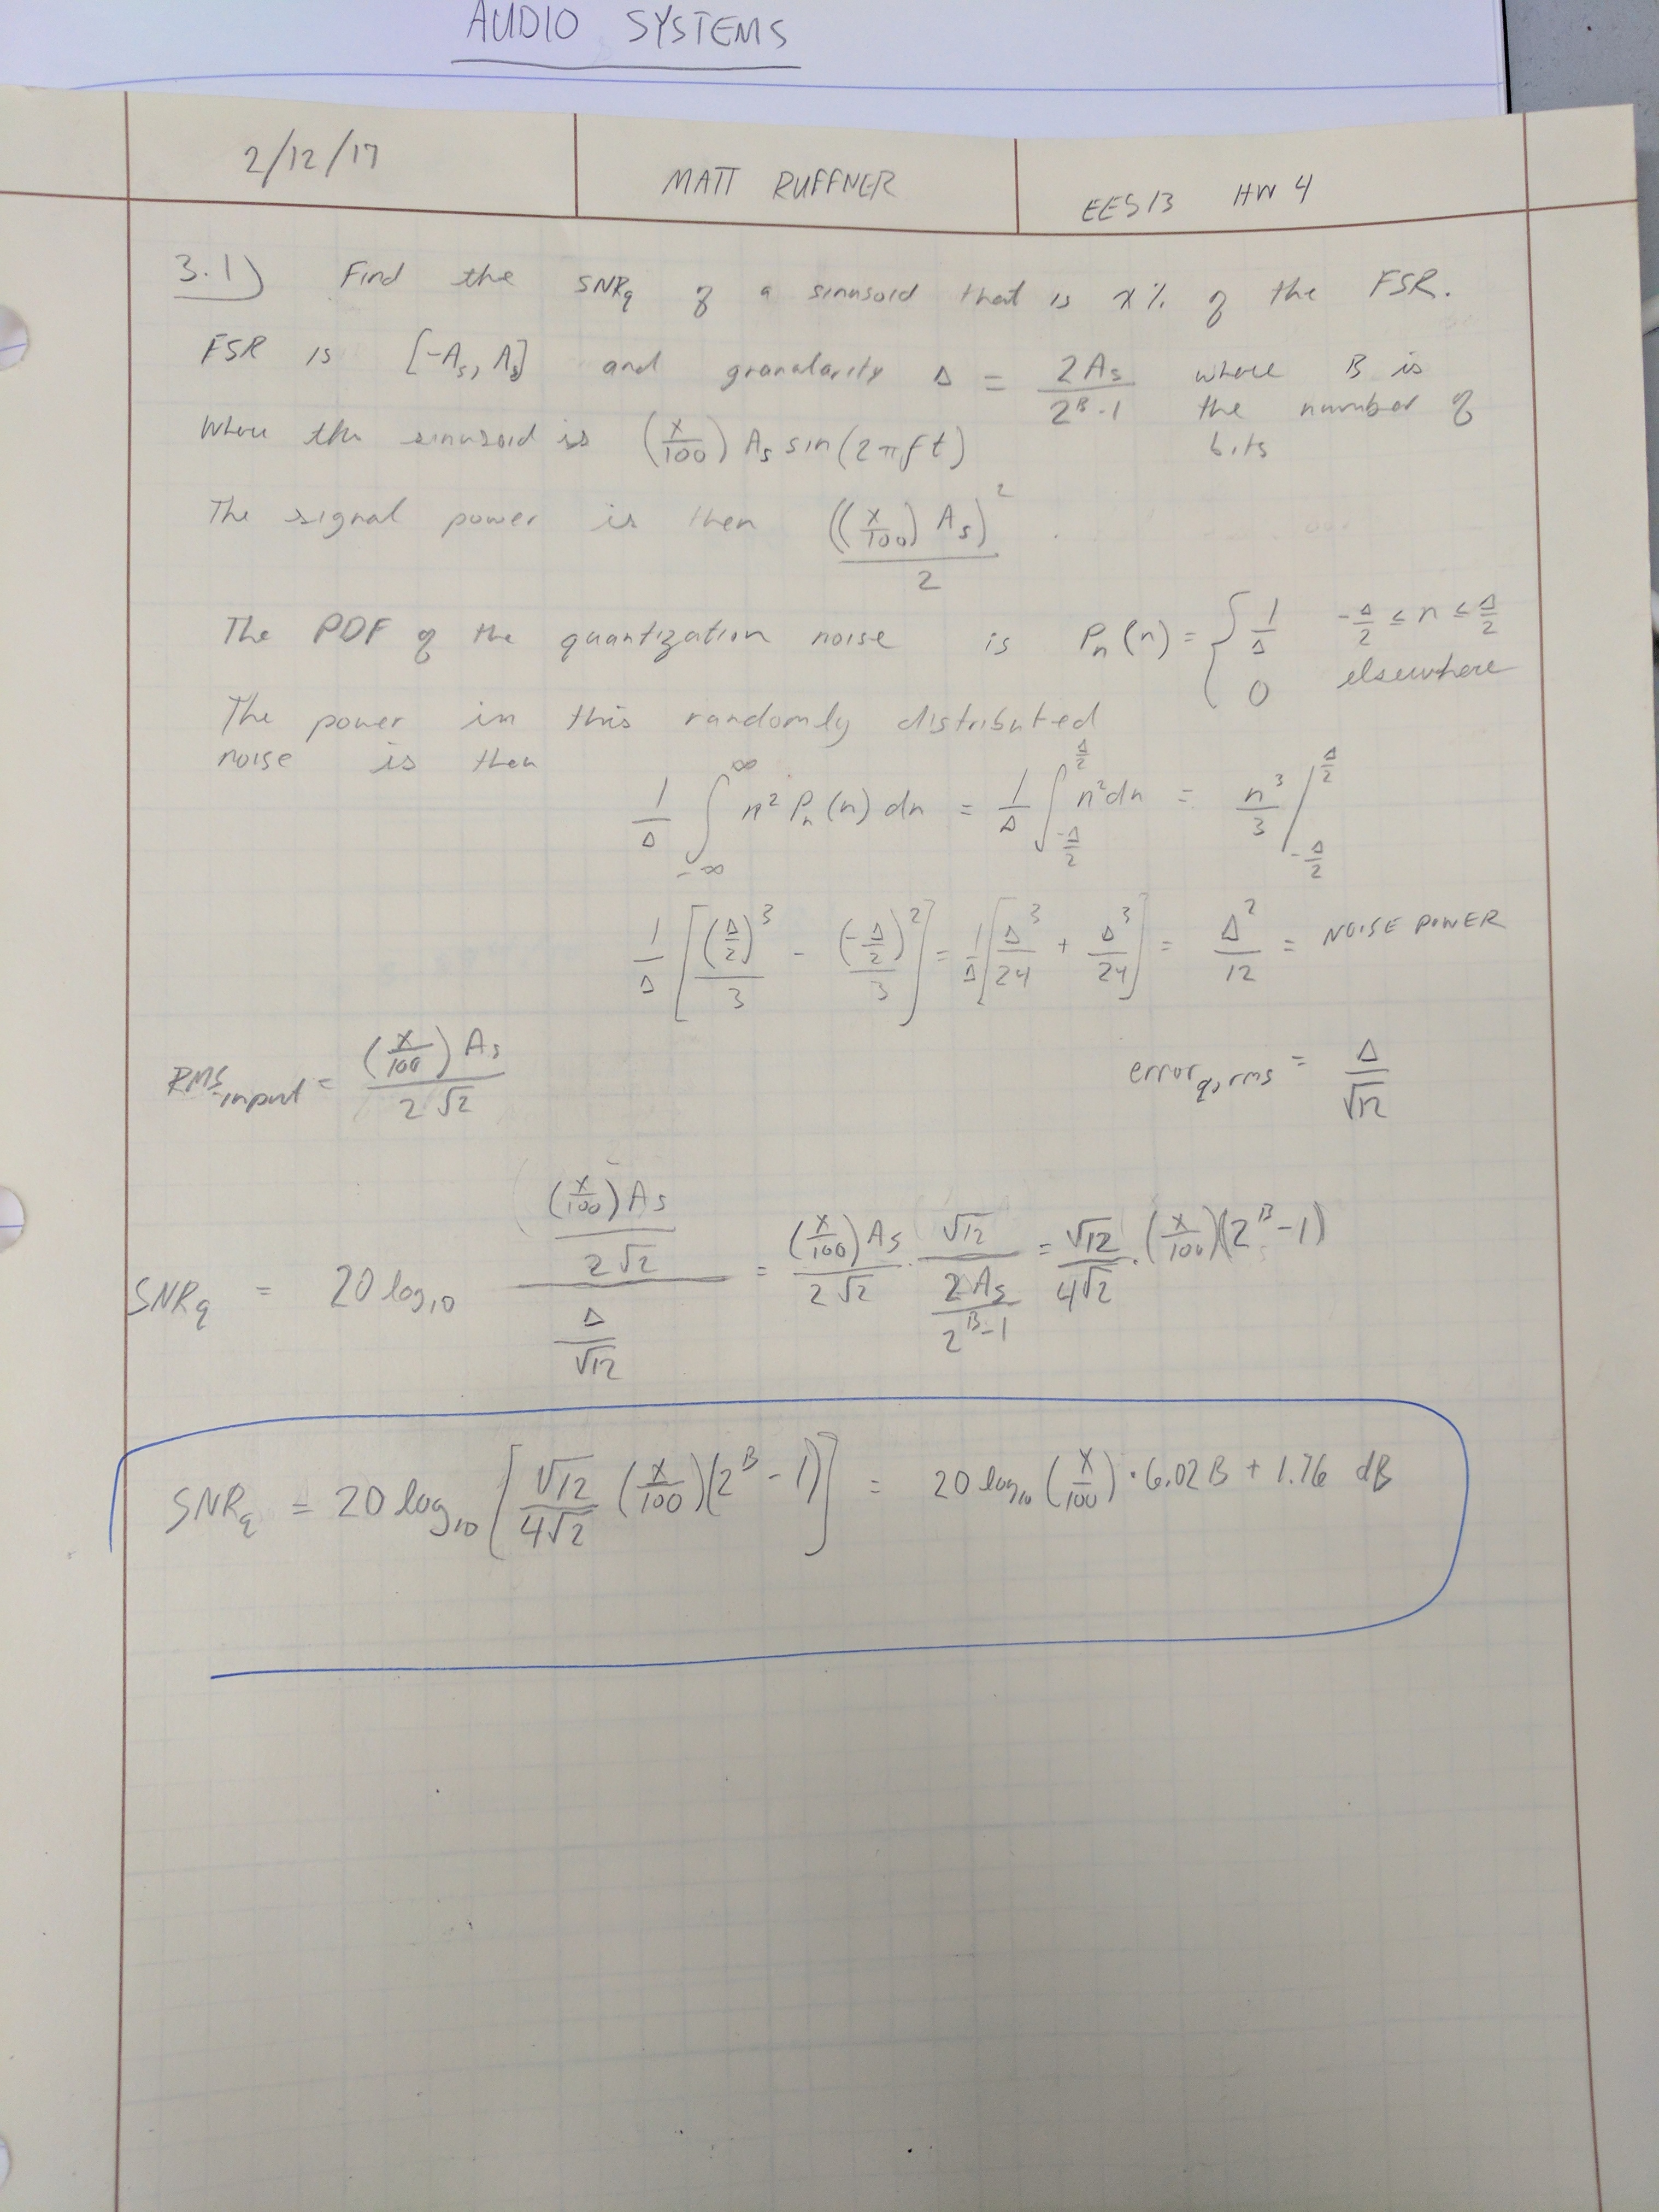 AUDIO SYSTEMS
2/12/17 MATT RUFFNER EE513 HW 4
3.1) Find the SNRq of a sinusoid that is x% of the FSR.
FSR is [-As, As] and granularity Δ = 2As / (2^B - 1) where B is the number of bits
Where the sinusoid is (x/100) As sin(2πft)
The signal power is then ((x/100) As)^2 / 2
The PDF of the quantization noise is Pn(n) = { 1/Δ -Δ/2 ≤ n ≤ Δ/2
0 elsewhere
The power in this randomly distributed
noise is then
1/Δ ∫_{-∞}^{∞} n² Pn(n) dn = 1/Δ ∫_{-Δ/2}^{Δ/2} n² dn = n³/3 |_{-Δ/2}^{Δ/2}
1/Δ [ (Δ/2)³/3 - (-Δ/2)²/3 ] = 1/Δ [ Δ³/24 + Δ³/24 ] = Δ²/12 = NOISE POWER
RMSinput = (x/100) As / 2√2 error q,rms = Δ/√12
SNRq = 20 log10 ((x/100) As / 2√2) / (Δ/√12) = (x/100) As / 2√2 · √12 / (2As / (2^B-1)) = √12 / 4√2 · (x/100)(2^B-1)
SNRq = 20 log10 [ √12 / 4√2 (x/100)(2^B - 1) ] = 20 log10 (x/100) · 6.02B + 1.76 dB